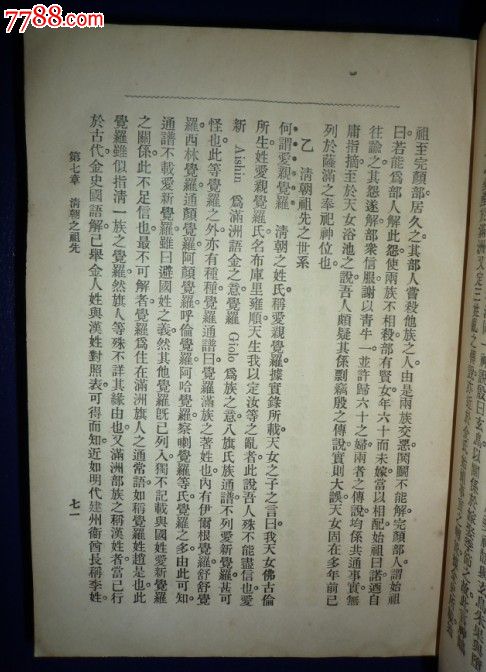 7788.com
祖至完顏部居久之其部人嘗殺他族之人由是兩族交惡鬨鬭不能解完顏部人謂始祖
曰若能爲部人解此怨使兩族不相殺部有賢女年六十而未嫁當以相配始祖曰諾迺自
往諭之其怨遂解部衆信服謝以靑牛一並許歸六十之婦兩者之傳說均係共通事實無
庸指摘至於天女浴池之說吾人頗疑其係剽竊殷之傳說實則大誤天女固在多年前已
列於薩滿之奉祀神位也
乙 淸朝祖先之世系
何謂愛親覺羅 淸朝之姓氏稱愛親覺羅據實錄所載天女之子之言曰我天女佛古倫
所生姓愛親覺羅氏名布庫里雍順天生我以定汝等之亂者此說吾人殊不能盡信也愛
新 Aishin 爲滿洲語金之意覺羅 Giolo 爲族之意八旗氏族通譜不列愛新覺羅甚可
怪也此等覺羅之外亦有種種覺羅通譜曰覺羅滿族之著姓也內有伊爾根覺羅舒舒覺
羅西林覺羅通顏覺羅阿顏覺羅呼倫覺羅阿哈覺羅察喇覺羅等氏覺羅之多由此可知
通譜不載愛新覺羅雖曰避國姓之義然其他覺羅旣已列入獨不記載與國姓愛新覺羅
之關係此不足信也最不可解者覺羅爲住在滿洲旗人之通常語如稱覺羅姓趙是也此
覺羅雖似指淸一族之覺羅然旗人等殊不詳其緣由也又滿洲部族之稱漢姓者當已行
於古代金史國語解已舉金人姓與漢姓對照表可得而知近如明代建州衞酋長稱李姓
第七章 淸朝之祖先
七一